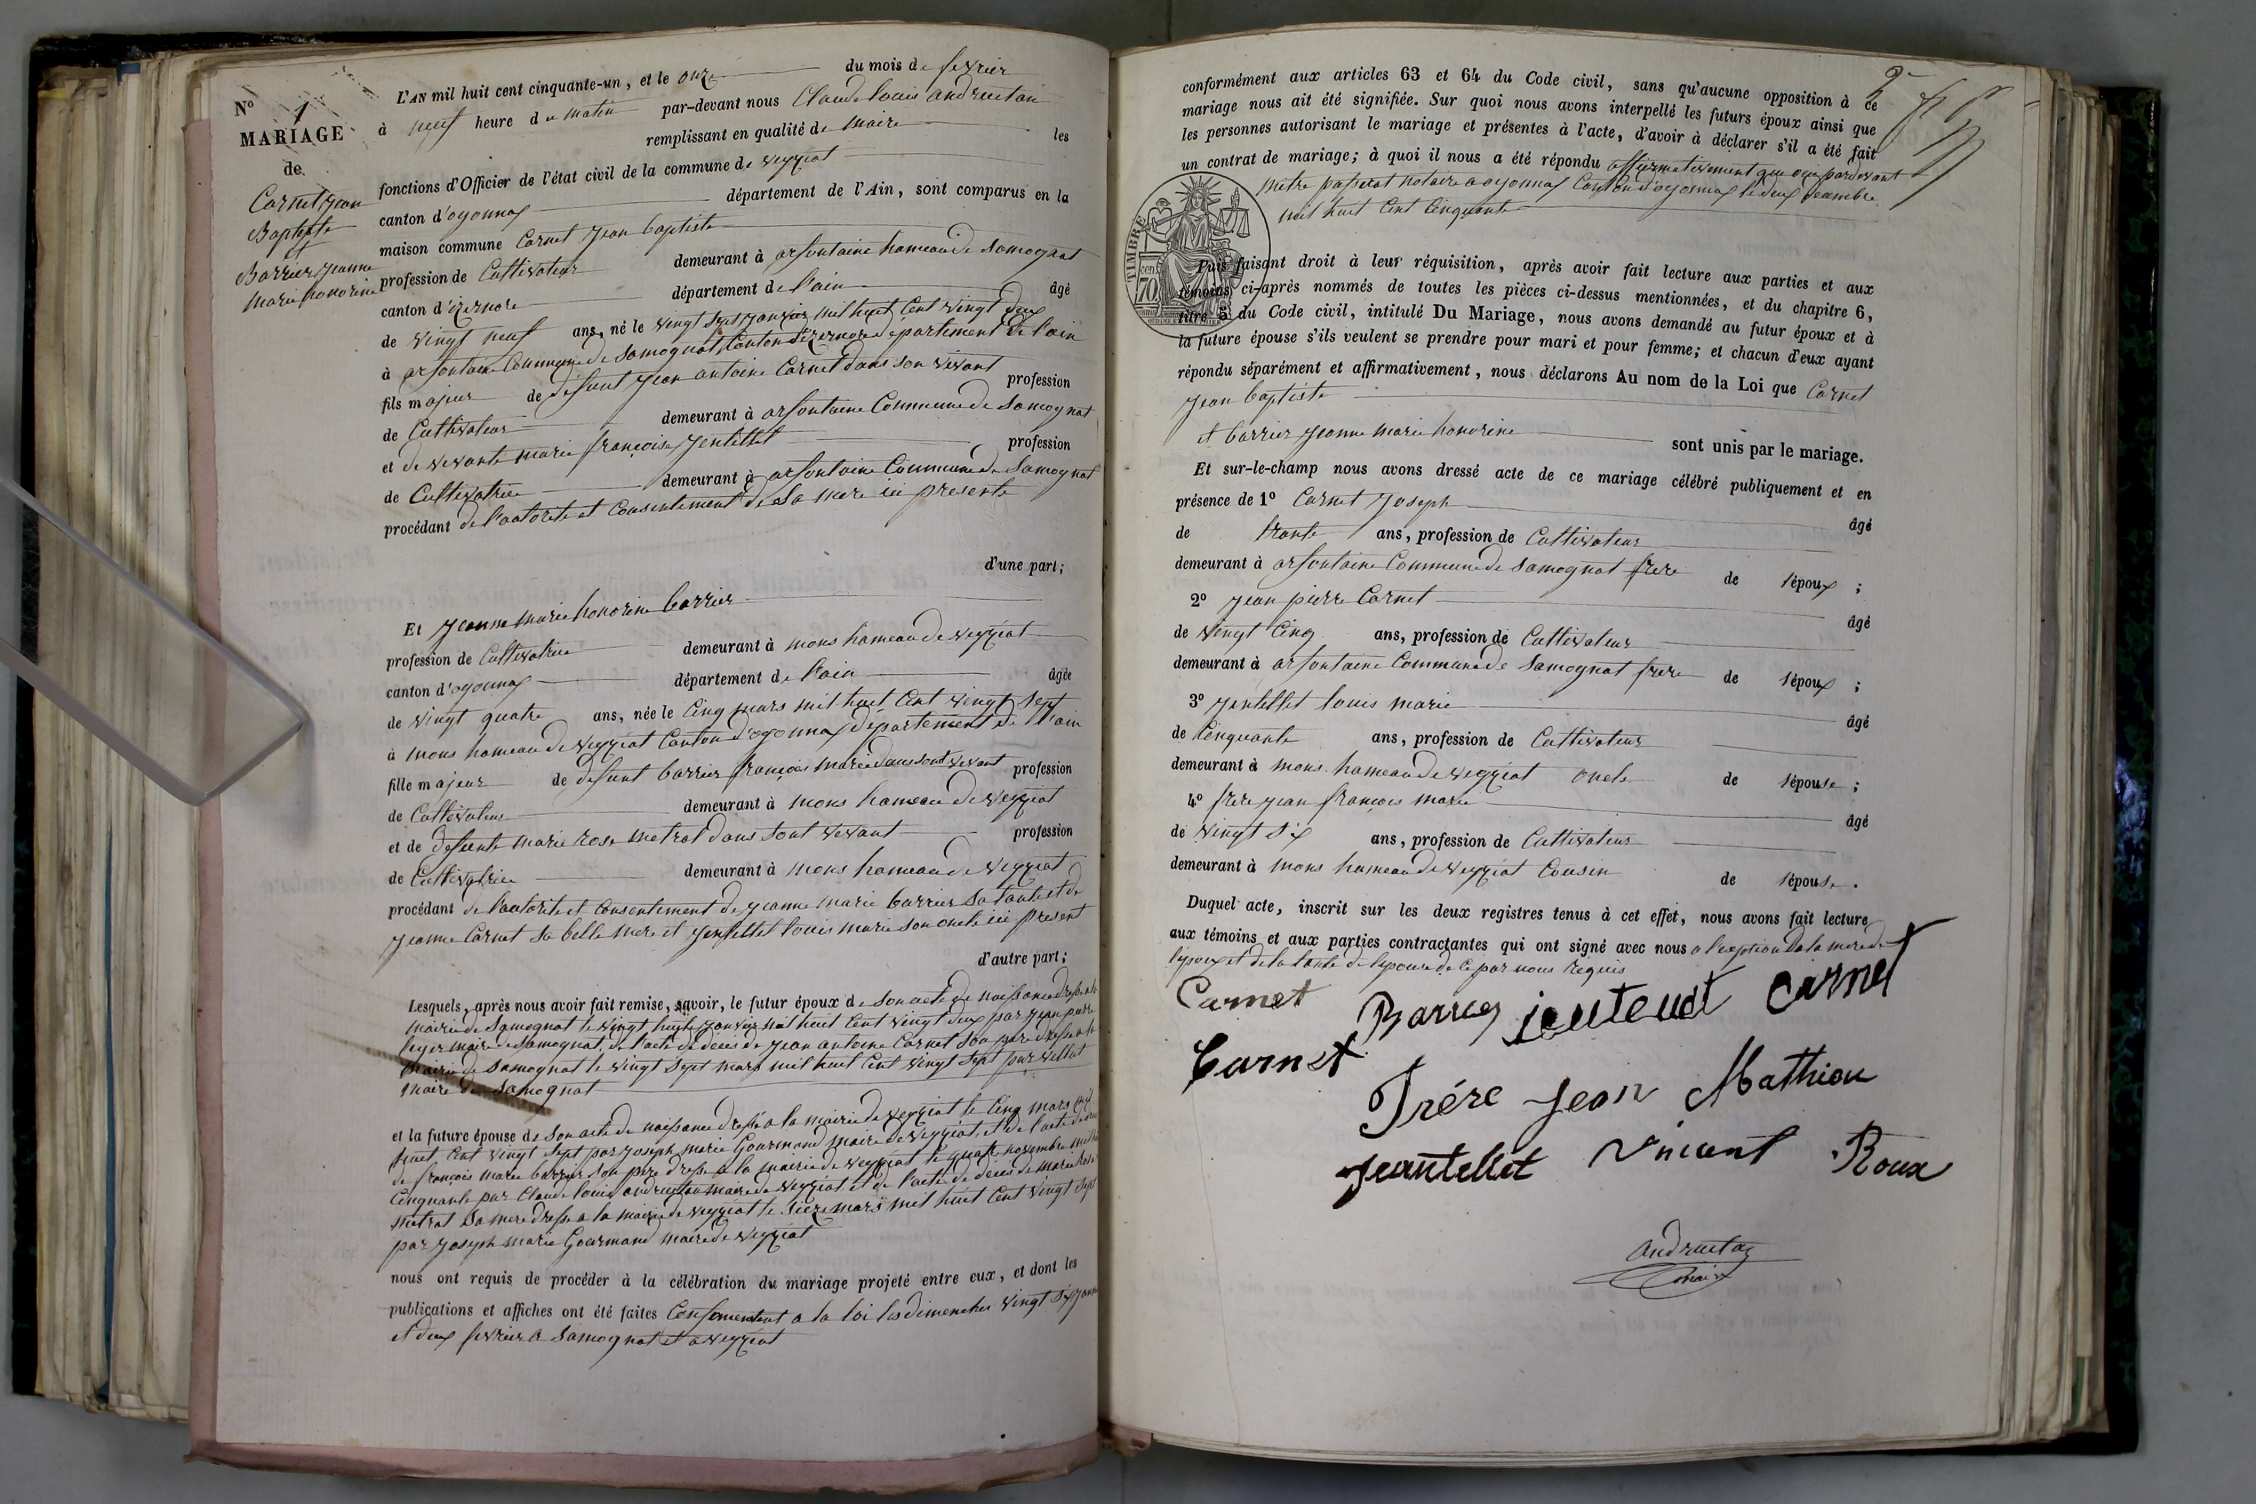 N° 1
MARIAGE
de
Carnet Jean
Baptiste
et
Barrier Jeanne
Marie honorine
L'AN mil huit cent cinquante-un, et le onze du mois de fevrier
à neuf heure du matin par-devant nous Claude louis andruetan
remplissant en qualité de maire les
fonctions d'Officier de l'état civil de la commune de veyziat
canton d'oyonnax département de l'Ain, sont comparus en la
maison commune Carnet Jean baptiste
profession de Cultivateur demeurant à arfontaine hameau de Samognat
canton d'izernore département de l'ain âgé
de vingt neuf ans, né le vingt sept janvier mil huit Cent vingt deux
à arfontaine Commune de Samognat Canton d'izernore departement de l'ain
fils majeur de defunt Jean antoine Carnet dans son vivant profession
de Cultivateur demeurant à arfontaine Commune de Samognat
et de vivante marie françoise Jentillet profession
de Cultivatrice demeurant à arfontaine Commune de Samognat
procédant de l'autorite et Consentement de Sa mere ici presente
d'une part;
Et Jeanne marie honorine barrier
profession de Cultivatrice demeurant à mons hameau de veyziat
canton d'oyonnax département de l'ain âgée
de vingt quatre ans, née le Cinq mars mil huit Cent vingt Sept
à mons hameau de veyziat Canton d'oyonnax département de l'ain
fille majeur de defunt barrier françois marie dans sont vivant profession
de Cultivateur demeurant à mons hameau de veyziat
et de defunte marie rose metrat dans sont vivant profession
de Cultivatrice demeurant à mons hameau de veyziat
procédant de l'autorite et Consentement de Jeanne marie barrier sa tante et de
Jeanne Carnet sa belle mere et Jentellet louis marie son oncle ici present
d'autre part;
Lesquels, après nous avoir fait remise, savoir, le futur époux de son acte de naissance dressé a la
mairie de Samognat le vingt huit janvier mil huit Cent vingt deux par Jean pierre
leger maire de Samognat, de l'acte de deces de Jean antoine Carnet Son pere dressé a la
mairie de Samognat le vingt Sept mars mil huit Cent vingt Sept par vellut
maire de Samognat
et la future épouse de Son acte de naissance dressé a la mairie de veyziat le Cinq mars mil
huit Cent vingt Sept par Joseph marie Gourmand maire de veyziat, et de l'acte de
de françois marie barrier Son pere dressé a la mairie de veyziat le quatre novembre mil
Cinquante par Claude louis andruetan maire de veyziat et de l'acte de deces de marie rose
metrat Sa mere dressé a la mairie de veyziat le mars mil huit Cent vingt Sept
par Joseph marie Gourmand maire de veyziat
nous ont requis de procéder à la célébration du mariage projeté entre eux, et dont les
publications et affiches ont été faites Conformement a la loi les dimenches vingt Six Janvier
et deux fevrier a Samognat et a veyziat
conformément aux articles 63 et 64 du Code civil, sans qu'aucune opposition à ce
mariage nous ait été signifiée. Sur quoi nous avons interpellé les futurs époux ainsi que
les personnes autorisant le mariage et présentes à l'acte, d'avoir à déclarer s'il a été fait
un contrat de mariage; à quoi il nous a été répondu affirmativement que oui pardevant
metre passerat notaire a oyonnax Canton d'oyonnax le deux decembre
mil huit Cent Cinquante
TIMBRE
70
Puis faisant droit à leur réquisition, après avoir fait lecture aux parties et aux
témoins ci-après nommés de toutes les pièces ci-dessus mentionnées, et du chapitre 6,
titre 5 du Code civil, intitulé Du Mariage, nous avons demandé au futur époux et à
la future épouse s'ils veulent se prendre pour mari et pour femme; et chacun d'eux ayant
répondu séparément et affirmativement, nous déclarons Au nom de la Loi que Carnet
Jean baptiste
et barrier Jeanne marie honorine sont unis par le mariage.
Et sur-le-champ nous avons dressé acte de ce mariage célébré publiquement et en
présence de 1° Carnet Joseph âgé
de trante ans, profession de Cultivateur
demeurant à arfontaine Commune de Samognat frere de l'époux ;
2° Jean pierre Carnet âgé
de vingt Cinq ans, profession de Cultivateur
demeurant à arfontaine Commune de Samognat frere de l'époux ;
3° Jentellet louis marie âgé
de Cinquante ans, profession de Cultivateur
demeurant à mons hameau de veyziat oncle de l'épouse ;
4° frere Jean françois marie âgé
de vingt Six ans, profession de Cultivateur
demeurant à mons hameau de veyziat Cousin de l'épouse .
Duquel acte, inscrit sur les deux registres tenus à cet effet, nous avons fait lecture
aux témoins et aux parties contractantes qui ont signé avec nous a l'exeption de la mere de
l'epoux et de la tante de l'epouse de Ce par nous requis
Carnet Barrier jeuteudt Carnet
Carnet
Frére Jean Mathieu
Jeantellet Vincent Roux
andruetan
maire